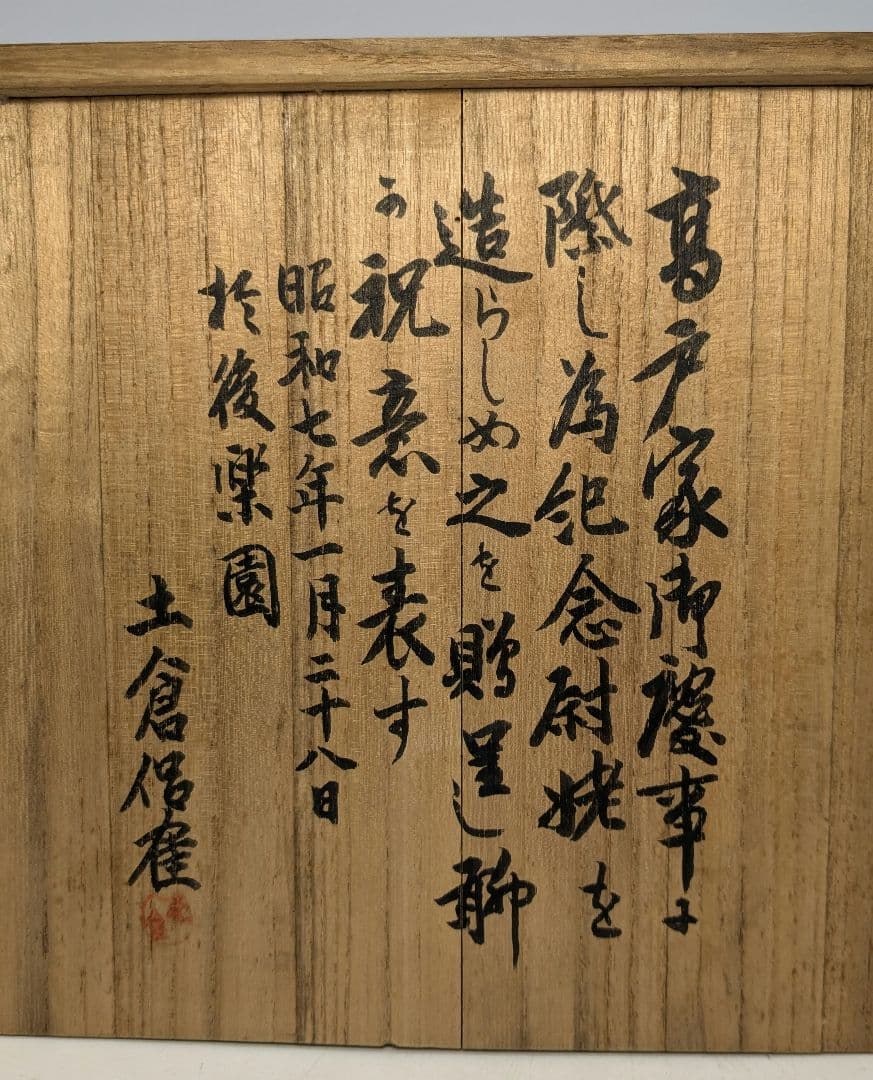 高戸家御慶事に
際し為紀念尉姥を
造らしめ之を贈呈し聊
か祝意を表す
昭和七年一月二十八日
於後樂園
土倉侶崔